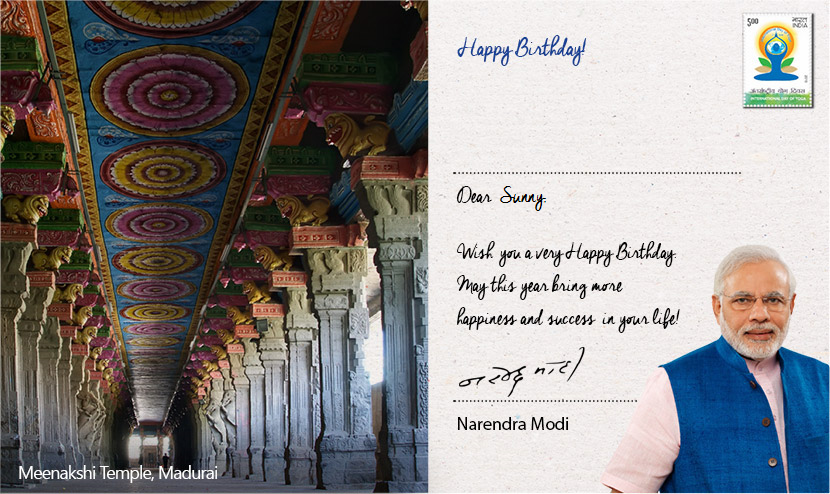 Happy Birthday!
5.00 भारत
INDIA
अंतर्राष्ट्रीय योग दिवस
INTERNATIONAL DAY OF YOGA
Dear Sunny
Wish you a very Happy Birthday.
May this year bring more
happiness and success in your life!
नरेन्द्र मोदी
Narendra Modi
Meenakshi Temple, Madurai